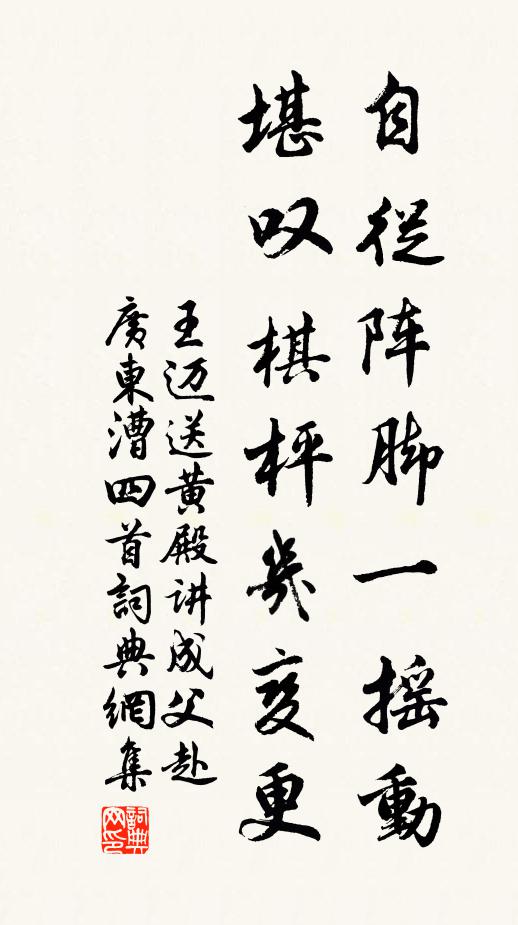 自從阵脚一摇動
堪叹棋枰幾变更
王迈送黄殿讲成父赴
廣東漕四首詞典網集
詞典
网印